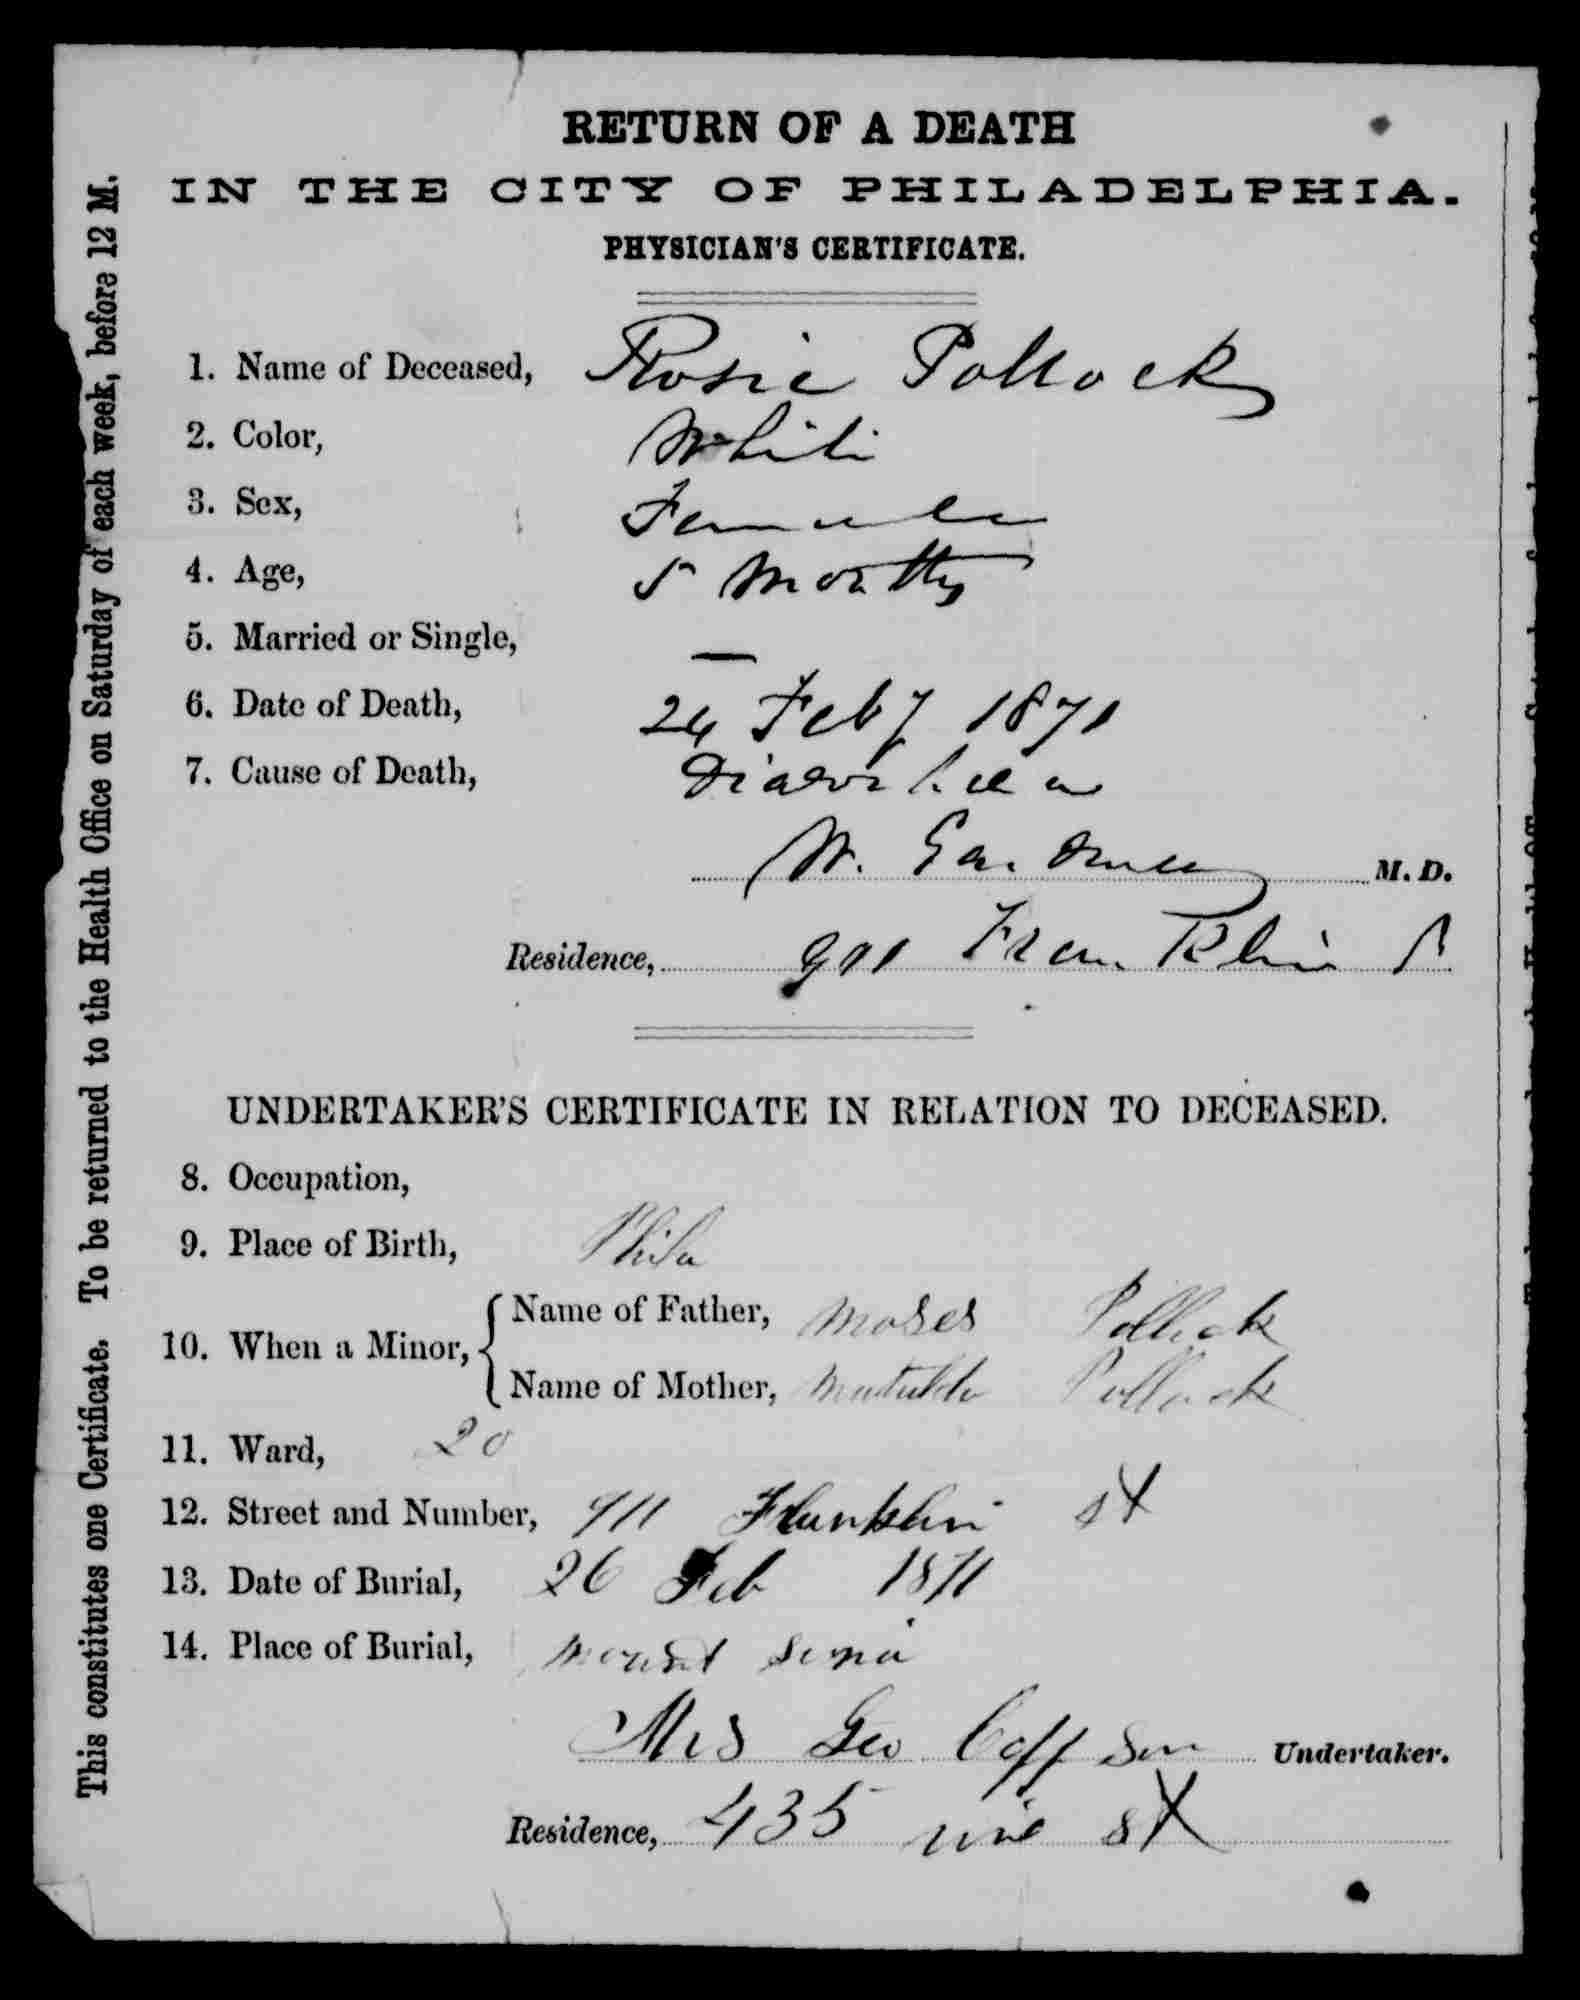 RETURN OF A DEATH
IN THE CITY OF PHILADELPHIA.
PHYSICIAN'S CERTIFICATE.
1. Name of Deceased, Rosie Pollock
2. Color, White
3. Sex, Female
4. Age, 5 Months
5. Married or Single, —
6. Date of Death, 24 Feby 1871
7. Cause of Death, Diarrhoea
W. M.D.
Residence, 901 Franklin St
UNDERTAKER'S CERTIFICATE IN RELATION TO DECEASED.
8. Occupation,
9. Place of Birth, Phila
10. When a Minor,
Name of Father, Moses Pollock
Name of Mother, Matilda Pollock
11. Ward, 20
12. Street and Number, 911 Franklin st
13. Date of Burial, 26 Feb 1871
14. Place of Burial, mount Sinai
Mrs Geo Undertaker.
Residence, 435 Vine st
This constitutes one Certificate. To be returned to the Health Office on Saturday of each week, before 12 M.